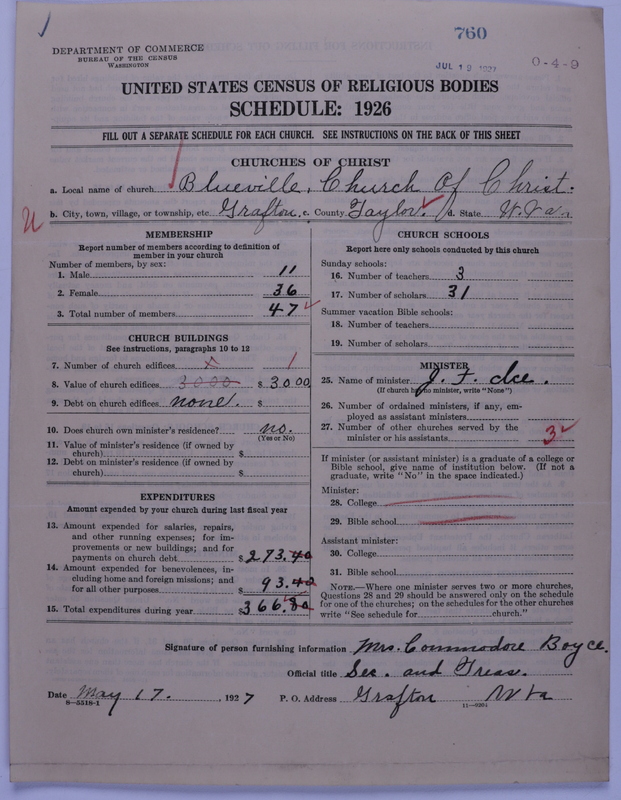 760
DEPARTMENT OF COMMERCE
BUREAU OF THE CENSUS
WASHINGTON
JUL 19 1927
0-4-9
UNITED STATES CENSUS OF RELIGIOUS BODIES
SCHEDULE: 1926
FILL OUT A SEPARATE SCHEDULE FOR EACH CHURCH. SEE INSTRUCTIONS ON THE BACK OF THIS SHEET
CHURCHES OF CHRIST
a. Local name of church Blueville, Church Of Christ.
b. City, town, village, or township, etc. Grafton c. County Taylor. d. State W. Va.
MEMBERSHIP
Report number of members according to definition of
member in your church
Number of members, by sex:
1. Male 11
2. Female 36
3. Total number of members 47
CHURCH BUILDINGS
See instructions, paragraphs 10 to 12
7. Number of church edifices x 1
8. Value of church edifices 3000 $ 3000
9. Debt on church edifices none. $
10. Does church own minister's residence? no.
(Yes or No)
11. Value of minister's residence (if owned by
church) $
12. Debt on minister's residence (if owned by
church) $
EXPENDITURES
Amount expended by your church during last fiscal year
13. Amount expended for salaries, repairs,
and other running expenses; for im-
provements or new buildings; and for
payments on church debt $ 273.40
14. Amount expended for benevolences, in-
cluding home and foreign missions; and
for all other purposes $ 93.40
15. Total expenditures during year $ 366.80
CHURCH SCHOOLS
Report here only schools conducted by this church
Sunday schools:
16. Number of teachers 3
17. Number of scholars 31
Summer vacation Bible schools:
18. Number of teachers
19. Number of scholars
MINISTER
25. Name of minister J. F. Ice.
(If church has no minister, write "None")
26. Number of ordained ministers, if any, em-
ployed as assistant ministers
27. Number of other churches served by the
minister or his assistants 3
If minister (or assistant minister) is a graduate of a college or
Bible school, give name of institution below. (If not a
graduate, write "No" in the space indicated.)
Minister:
28. College
29. Bible school
Assistant minister:
30. College
31. Bible school
NOTE.—Where one minister serves two or more churches,
Questions 28 and 29 should be answered only on the schedule
for one of the churches; on the schedules for the other churches
write "See schedule for church."
Signature of person furnishing information Mrs. Commodore Boyce.
Official title Sec. and Treas.
Date May 17. , 1927 P. O. Address Grafton W Va
8—5518-1
11—9204